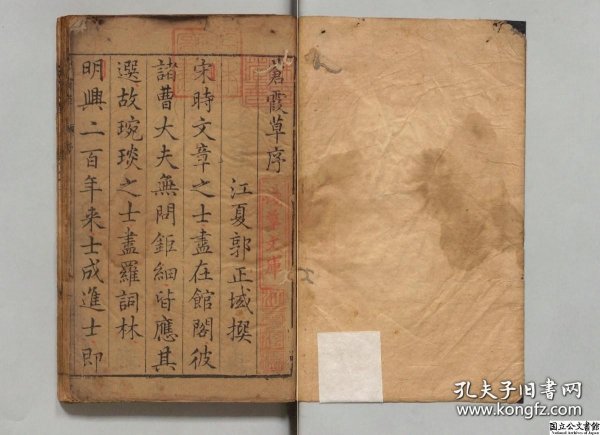 蒼霞草序
江夏郭正域撰
宋時文章之士盡在館閣彼
諸曹大夫無問鉅細皆應其
選故琬琰之士盡羅詞林
明興二百年來士成進士即
孔夫子旧书网
www.kongfz.com
国立公文書館
National Archives of Japan